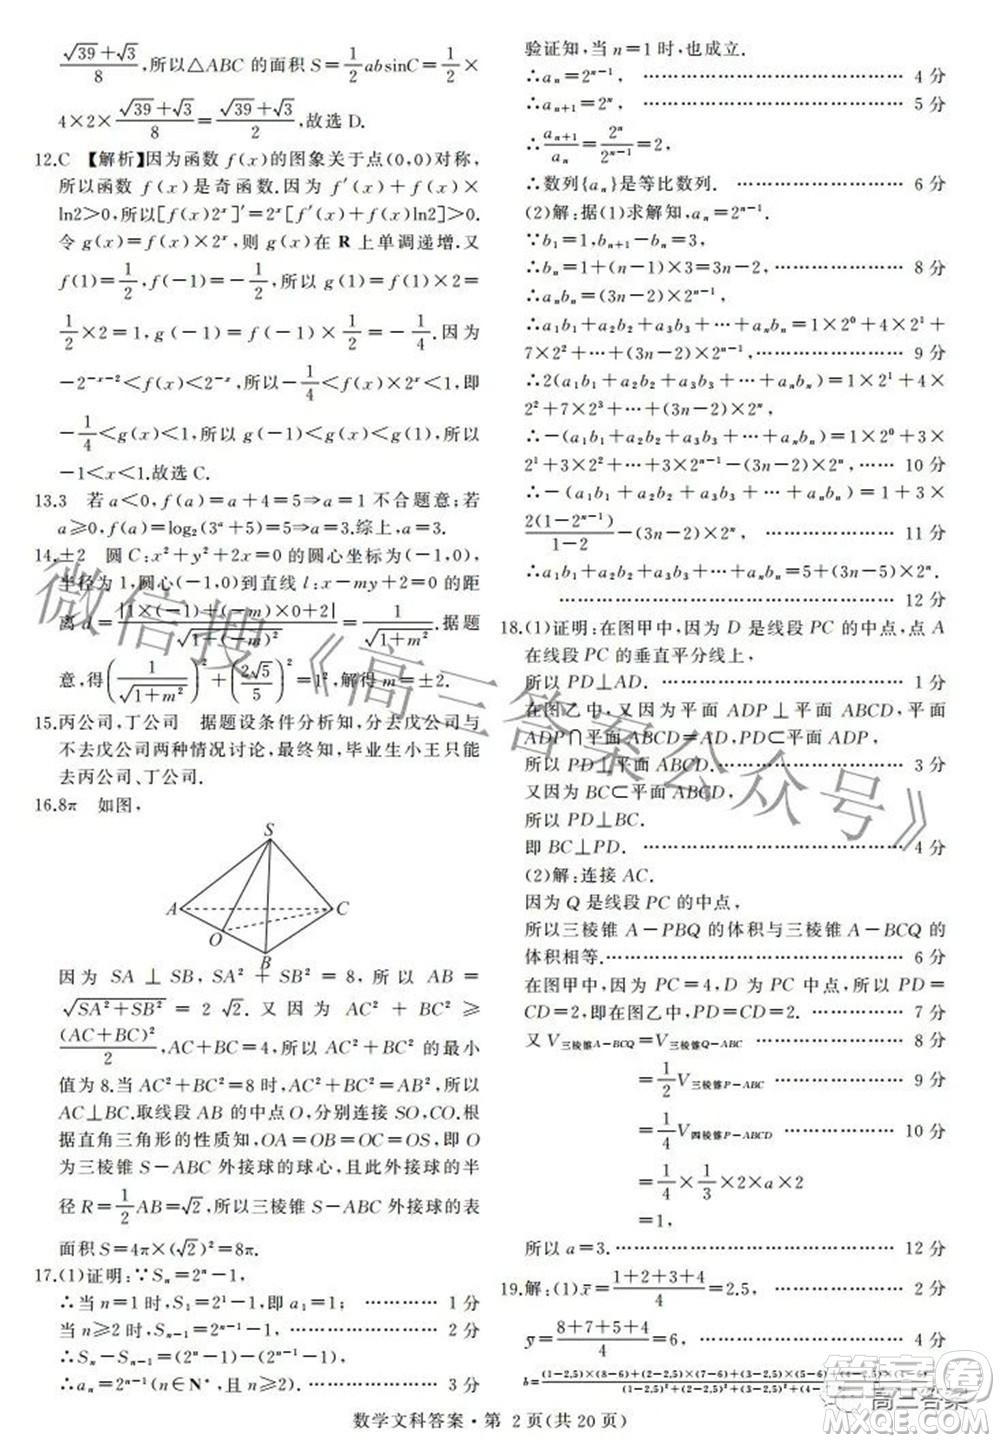 (√39+√3)/8,所以△ABC 的面积 S=1/2 absinC=1/2×
4×2×(√39+√3)/8=(√39+√3)/2,故选 D.
12.C 【解析】因为函数 f(x)的图象关于点(0,0)对称,
所以函数 f(x)是奇函数.因为 f′(x)+f(x)×
ln2>0,所以[f(x)2ˣ]′=2ˣ[f′(x)+f(x)ln2]>0.
令 g(x)=f(x)×2ˣ,则 g(x)在 R 上单调递增.又
f(1)=1/2,f(-1)=-1/2,所以 g(1)=f(1)×2=
1/2×2=1,g(-1)=f(-1)×1/2=-1/4.因为
-2^(-x-2)<f(x)<2^(-x),所以-1/4<f(x)×2ˣ<1,即
-1/4<g(x)<1,所以 g(-1)<g(x)<g(1),所以
-1<x<1.故选 C.
13.3 若 a<0,f(a)=a+4=5⇒a=1 不合题意;若
a≥0,f(a)=log₂(3ᵃ+5)=5⇒a=3.综上,a=3.
14.±2 圆 C:x²+y²+2x=0 的圆心坐标为(-1,0),
半径为 1,圆心(-1,0)到直线 l:x-my+2=0 的距
离 d=|1×(-1)+(-m)×0+2|/√(1+(-m)²)=1/√(1+m²).据题
意,得(1/√(1+m²))²+(2√5/5)²=1²,解得 m=±2.
15.丙公司,丁公司 据题设条件分析知,分去戊公司与
不去戊公司两种情况讨论,最终知,毕业生小王只能
去丙公司、丁公司.
16.8π 如图,
S
A
C
O
B
因为 SA⊥SB,SA²+SB²=8,所以 AB=
√(SA²+SB²)=2√2.又因为 AC²+BC²≥
(AC+BC)²/2,AC+BC=4,所以 AC²+BC² 的最小
值为 8.当 AC²+BC²=8 时,AC²+BC²=AB²,所以
AC⊥BC.取线段 AB 的中点 O,分别连接 SO,CO.根
据直角三角形的性质知,OA=OB=OC=OS,即 O
为三棱锥 S-ABC 外接球的球心,且此外接球的半
径 R=1/2AB=√2,所以三棱锥 S-ABC 外接球的表
面积 S=4π×(√2)²=8π.
17.(1)证明:∵Sₙ=2ⁿ-1,
∴当 n=1 时,S₁=2¹-1,即 a₁=1; ………… 1 分
当 n≥2 时,Sₙ₋₁=2ⁿ⁻¹-1, ………… 2 分
∴Sₙ-Sₙ₋₁=(2ⁿ-1)-(2ⁿ⁻¹-1),
∴aₙ=2ⁿ⁻¹(n∈N*,且 n≥2). ………… 3 分
验证知,当 n=1 时,也成立.
∴aₙ=2ⁿ⁻¹, ………… 4 分
∴aₙ₊₁=2ⁿ, ………… 5 分
∴aₙ₊₁/aₙ=2ⁿ/2ⁿ⁻¹=2,
∴数列{aₙ}是等比数列. ………… 6 分
(2)解:据(1)求解知,aₙ=2ⁿ⁻¹.
∵b₁=1,bₙ₊₁-bₙ=3,
∴bₙ=1+(n-1)×3=3n-2, ………… 8 分
∴aₙbₙ=(3n-2)×2ⁿ⁻¹,
∴a₁b₁+a₂b₂+a₃b₃+…+aₙbₙ=1×2⁰+4×2¹+
7×2²+…+(3n-2)×2ⁿ⁻¹, ………… 9 分
∴2(a₁b₁+a₂b₂+a₃b₃+…+aₙbₙ)=1×2¹+4×
2²+7×2³+…+(3n-2)×2ⁿ,
∴-(a₁b₁+a₂b₂+a₃b₃+…+aₙbₙ)=1+3×2¹+
3×2²+…+3×2ⁿ⁻¹-(3n-2)×2ⁿ, …… 10 分
∴-(a₁b₁+a₂b₂+a₃b₃+…+aₙbₙ)=1+3×
2(1-2ⁿ⁻¹)/(1-2)-(3n-2)×2ⁿ, ………… 11 分
∴a₁b₁+a₂b₂+a₃b₃+…+aₙbₙ=5+(3n-5)×2ⁿ.
………… 12 分
18.(1)证明:在图甲中,因为 D 是线段 PC 的中点,点 A
在线段 PC 的垂直平分线上,
所以 PD⊥AD. ………… 1 分
在图乙中,又因为平面 ADP⊥平面 ABCD,平面
ADP∩平面 ABCD=AD,PD⊂平面 ADP,
所以 PD⊥平面 ABCD. ………… 3 分
又因为 BC⊂平面 ABCD,
所以 PD⊥BC.
即 BC⊥PD. ………… 4 分
(2)解:连接 AC.
因为 Q 是线段 PC 的中点,
所以三棱锥 A-PBQ 的体积与三棱锥 A-BCQ 的
体积相等. ………… 6 分
在图甲中,因为 PC=4,D 为 PC 的中点,所以 PD=
CD=2,即在图乙中,PD=CD=2. ………… 7 分
又 V三棱锥A-BCQ=V三棱锥Q-ABC ………… 8 分
=1/2V三棱锥P-ABC ………… 9 分
=1/4V四棱锥P-ABCD ………… 10 分
=1/4×1/3×2×a×2
=1,
所以 a=3. ………… 12 分
19.解:(1)x̄=(1+2+3+4)/4=2.5, ………… 2 分
ȳ=(8+7+5+4)/4=6, ………… 4 分
数学文科答案·第 2 页(共 20 页)
微信搜《高三答案公众号》
答案圈
高三答案
MXQE.COM